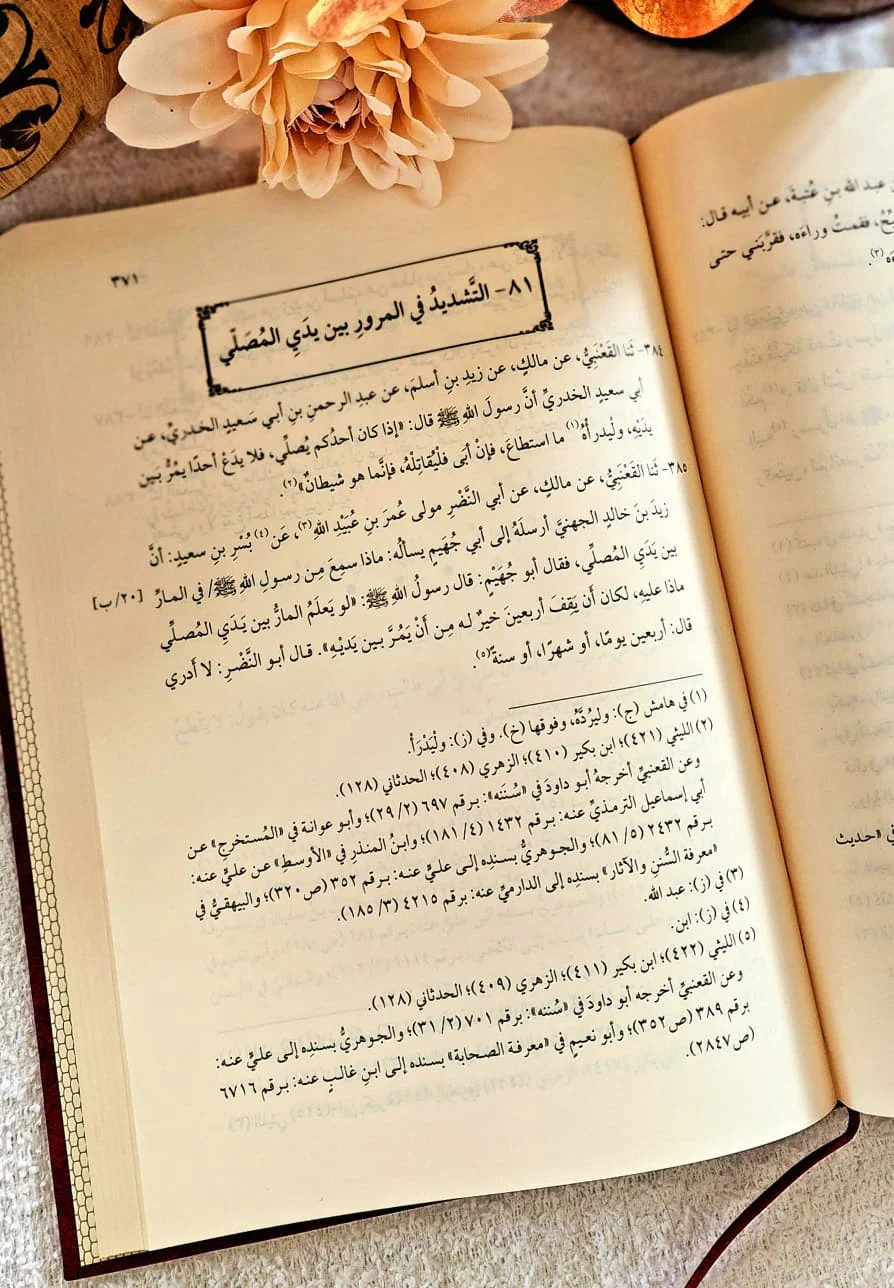 ن عبد الله بنِ عُتبةَ، عن أبيه قال:
فقمتُ وراءَه، فقرَّبَني حتى
(٣).
في «حديث
٣٧١
٨١- التَّشديدُ في المرورِ بين يدَيِ المُصَلّي
٣٨٤- ثَنا القَعْنَبِيُّ، عن مالكٍ، عن زيدِ بنِ أسلمَ، عن عبدِ الرحمنِ بنِ أبي سَعيدٍ الخدريِّ، عن
أبي سعيدٍ الخدريِّ أنَّ رسولَ اللهِ ﷺ قال: «إذا كان أحدُكم يُصلِّي، فلا يدَعْ أحدًا يمُرُّ بَين
يدَيْهِ، ولْيدرأْهُ(١) ما استطاعَ، فإنْ أبَى فليُقاتِلْهُ، فإنَّما هو شيطانٌ»(٢).
٣٨٥- ثَنا القَعْنَبِيُّ، عن مالكٍ، عن أبي النَّضْرِ مولى عُمرَ بنِ عُبَيْدِ اللهِ(٣)، عَن(٤) بُسْرِ بنِ سعيدٍ: أنَّ
زيدَ بنَ خالدٍ الجهنيَّ أرسلَهُ إلى أبي جُهَيمٍ يسألُه: ماذا سمِعَ مِن رسولِ اللهِ ﷺ/ في المارِّ [٢٠/ب]
بين يَدَيِ المُصلِّي، فقال أبو جُهَيْمٍ: قال رسولُ اللهِ ﷺ: «لو يَعلَمُ المارُّ بين يَدَيِ المُصلِّي
ماذا عليه، لكان أن يَقِفَ أربعينَ خيرٌ له مِن أنْ يَمُرَّ بين يَديْهِ». قال أبو النَّضْرِ: لا أدري
قال: أربعين يومًا، أو شهرًا، أو سنةً(٥).
(١) في هامش (ج): وليرُدَّهُ، وفوقها (خ). وفي (ز): ولْيَدْرَأْ.
(٢) الليثي (٤٢١)؛ ابن بكير (٤١٠)؛ الزهري (٤٠٨)؛ الحدثاني (١٢٨).
وعن القعنبيِّ أخرجهُ أبو داودَ في «سُنَنه»: برقم ٦٩٧ (٢/ ٢٩)؛ وأبو عوانة في «المُستخرجِ» عن
أبي إسماعيل الترمذيِّ عنه: برقم ١٤٣٢ (٤/ ١٨١)؛ وابنُ المنذرِ في «الأوسطِ» عن عليٍّ عنه:
برقم ٢٤٣٢ (٥/ ٨١)؛ والجوهريُّ بسندِه إلى عليٍّ عنه: برقم ٣٥٢ (ص٣٢٠)؛ والبيهقيُّ في
«معرفة السُّننِ والآثار» بسندِه إلى الدارميِّ عنه: برقم ٤٢١٥ (٣/ ١٨٥).
(٣) في (ز): عبد الله.
(٤) في (ز): ابن.
(٥) الليثي (٤٢٢)؛ ابن بكير (٤١١)؛ الزهري (٤٠٩)؛ الحدثاني (١٢٨).
وعن القعنبيِّ أخرجه أبو داودَ في «سُننه»: برقم ٧٠١ (٢/ ٣١)؛ والجوهريُّ بسندِه إلى عليٍّ عنه:
برقم ٣٨٩ (ص٣٥٢)؛ وأبو نعيمٍ في «معرفة الصحابة» بسنده إلى ابنِ غالبٍ عنه: برقم ٦٧١٦
(ص٢٨٤٧).